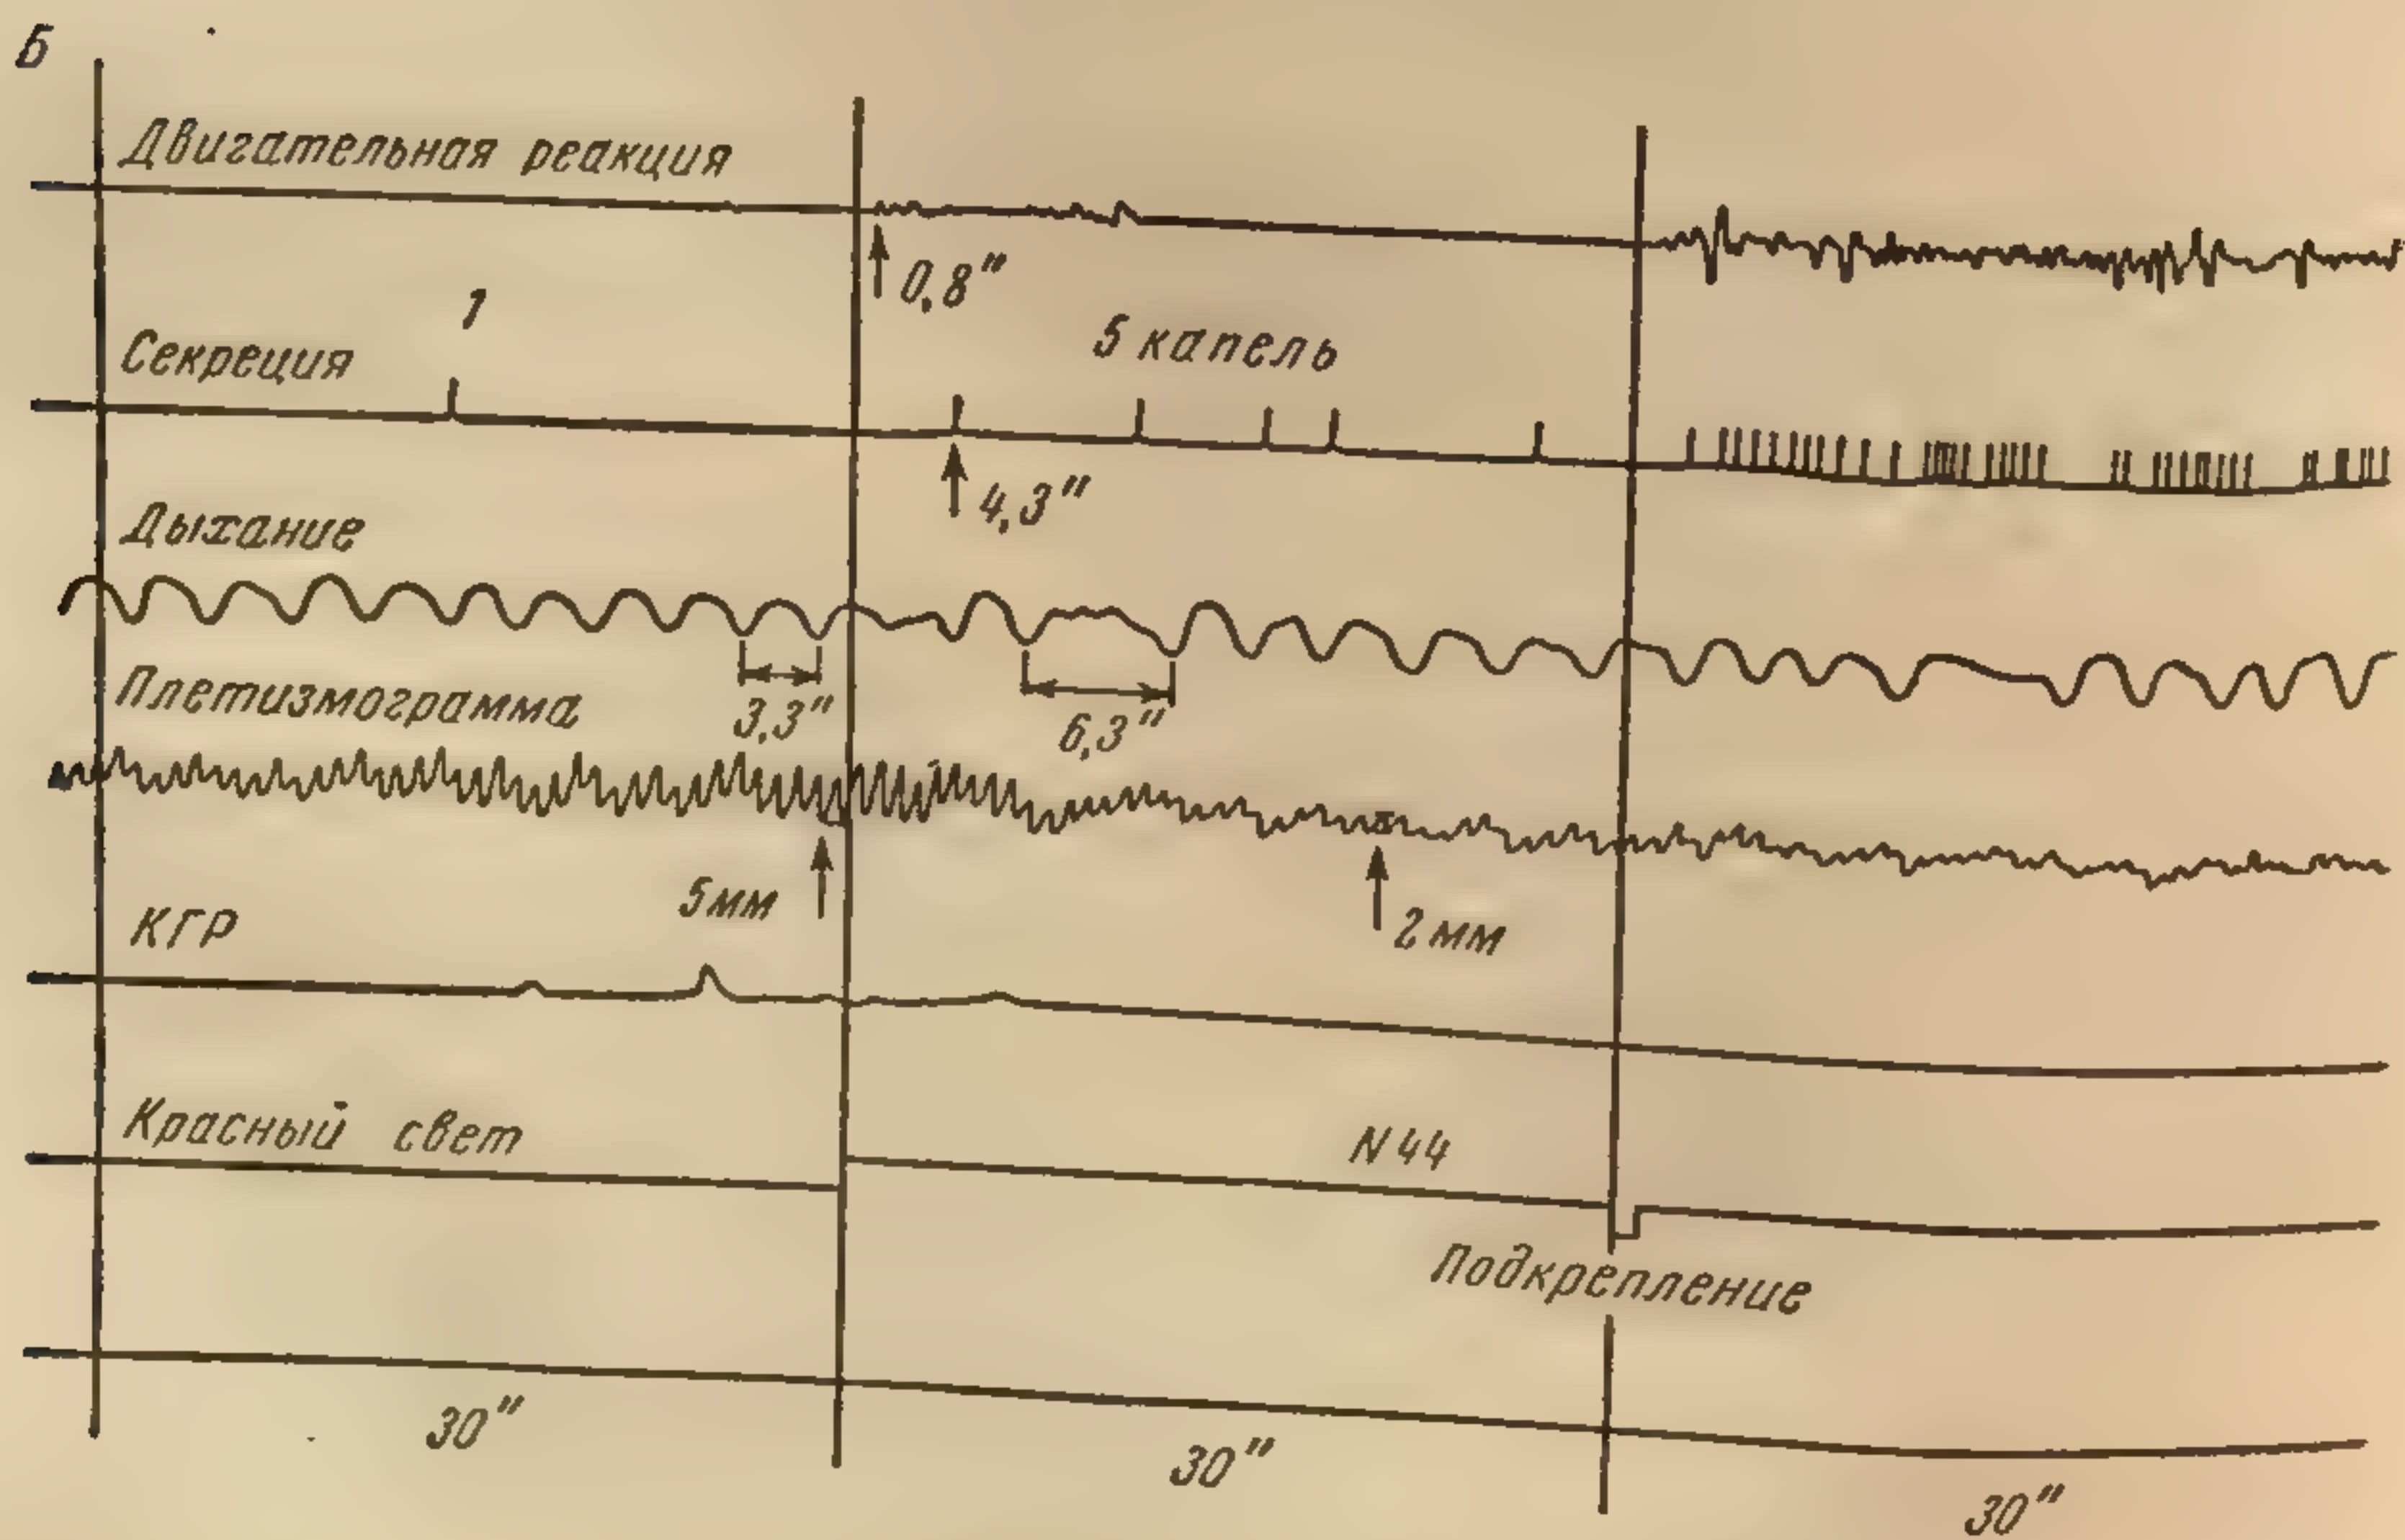 Б
Двигательная реакция
0,8"
1
Секреция
5 капель
4,3"
Дыхание
3,3"
6,3"
Плетизмограмма
5мм
2 мм
КГР
Красный свет
N 44
Подкрепление
30"
30"
30"